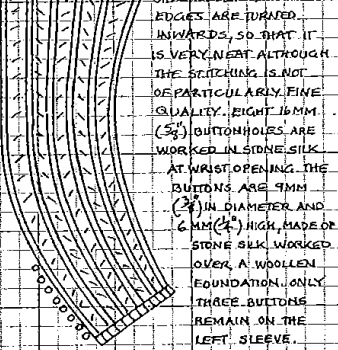 EDGES ARE TURNED
INWARDS, SO THAT IT
IS VERY NEAT ALTHOUGH
THE STITCHING IS NOT
OF PARTICULARLY FINE
QUALITY. EIGHT 16MM
(5/8") BUTTONHOLES ARE
WORKED IN STONE SILK
AT WRIST OPENING. THE
BUTTONS ARE 9MM
(3/8") IN DIAMETER AND
6MM (1/4") HIGH, MADE OF
STONE SILK WORKED
OVER A WOOLLEN
FOUNDATION. ONLY
THREE BUTTONS
REMAIN ON THE
LEFT SLEEVE.